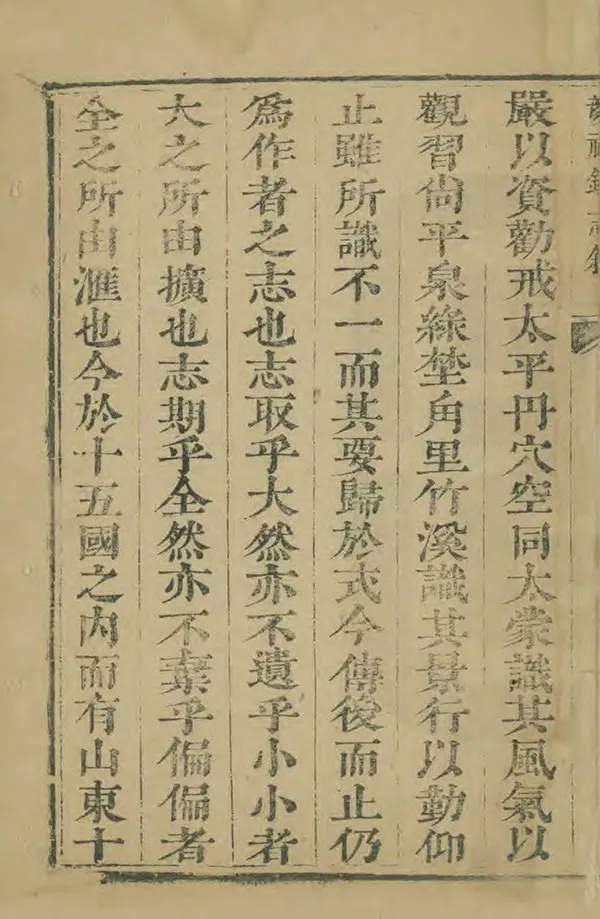 顏神鎮志錄
嚴以資勸戒太平丹穴空同太蒙識其風氣以
觀習尙平泉綠埜角里竹溪識其景行以勤仰
止雖所識不一而其要歸於式今傳後而止仍
爲作者之志也志取乎大然亦不遺乎小小者
大之所由擴也志期乎全然亦不棄乎偏偏者
全之所由滙也今於十五國之內而有山東十